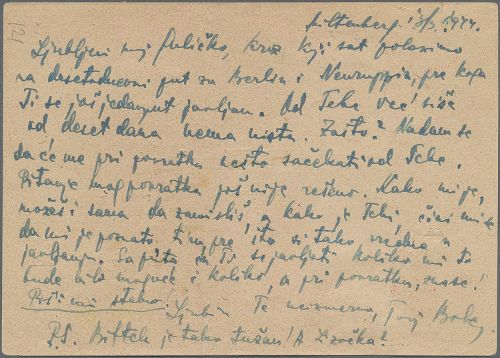 Miltenberg 13/3. 1944.
Ljubljeni moj Puličko, kroz koji sat polazimo
na desetodnevni put za Berlin i Neuruppin, pre koga
Ti se još jedanput javljam. Od Tebe već više
od deset dana nema ništa. Zašto? Nadam se
da će me pri povratku nešto sačekati od Tebe.
Pitanje mog povratka još nije rešeno. Kako mi je,
možeš i sama da zamisliš, a kako je Tebi,
da mi je poznato time, pre što si tako vredna u
javljanju. Sa puta ću Ti se javljati koliko mi to
bude bilo moguće i koliko, a pri povratku,
Piši mi stalno! Ljubi Te neizmerno, Tvoj Bobe
P.S. Biftek je tako tužan! A Zvočka?
121